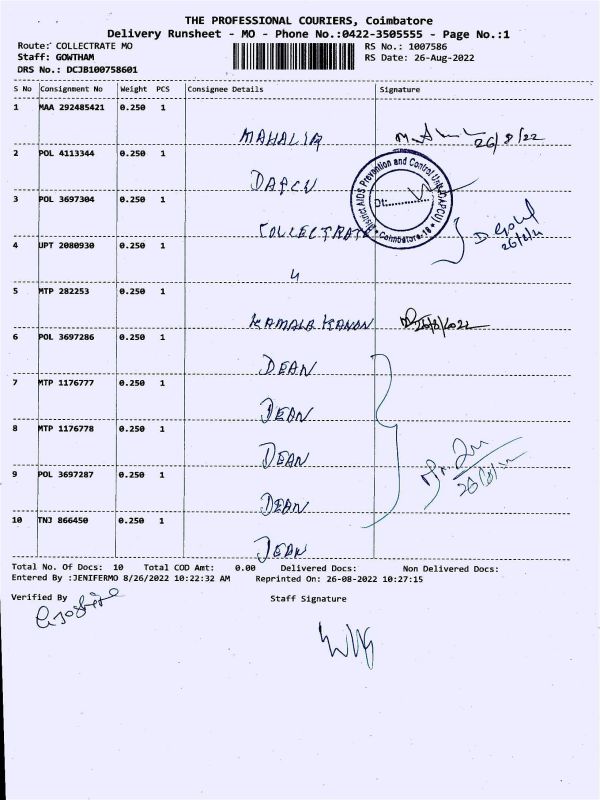 THE PROFESSIONAL COURIERS, Coimbatore
Delivery Runsheet - MO - Phone No.:0422-3505555 - Page No.:1
Route: COLLECTRATE MO RS No.: 1007586
Staff: GOWTHAM RS Date: 26-Aug-2022
DRS No.: DCJB100758601
S No Consignment No Weight PCS Consignee Details Signature
1 MAA 292485421 0.250 1
MAHALIR 26/8/22
2 POL 4113344 0.250 1
DAPCU
District AIDS Prevention and Control Unit (DAPCU)
Dt:..............
Coimbatore-18
3 POL 3697304 0.250 1
COLLECTRATE
4 UPT 2080930 0.250 1
5 MTP 282253 0.250 1
KAMALA KANAN 26/8/2022
6 POL 3697286 0.250 1
DEAN
7 MTP 1176777 0.250 1
DEAN
8 MTP 1176778 0.250 1
DEAN
9 POL 3697287 0.250 1
DEAN
10 TNJ 866450 0.250 1
DEAN
Total No. Of Docs: 10 Total COD Amt: 0.00 Delivered Docs: Non Delivered Docs:
Entered By :JENIFERMO 8/26/2022 10:22:32 AM Reprinted On: 26-08-2022 10:27:15
Verified By Staff Signature